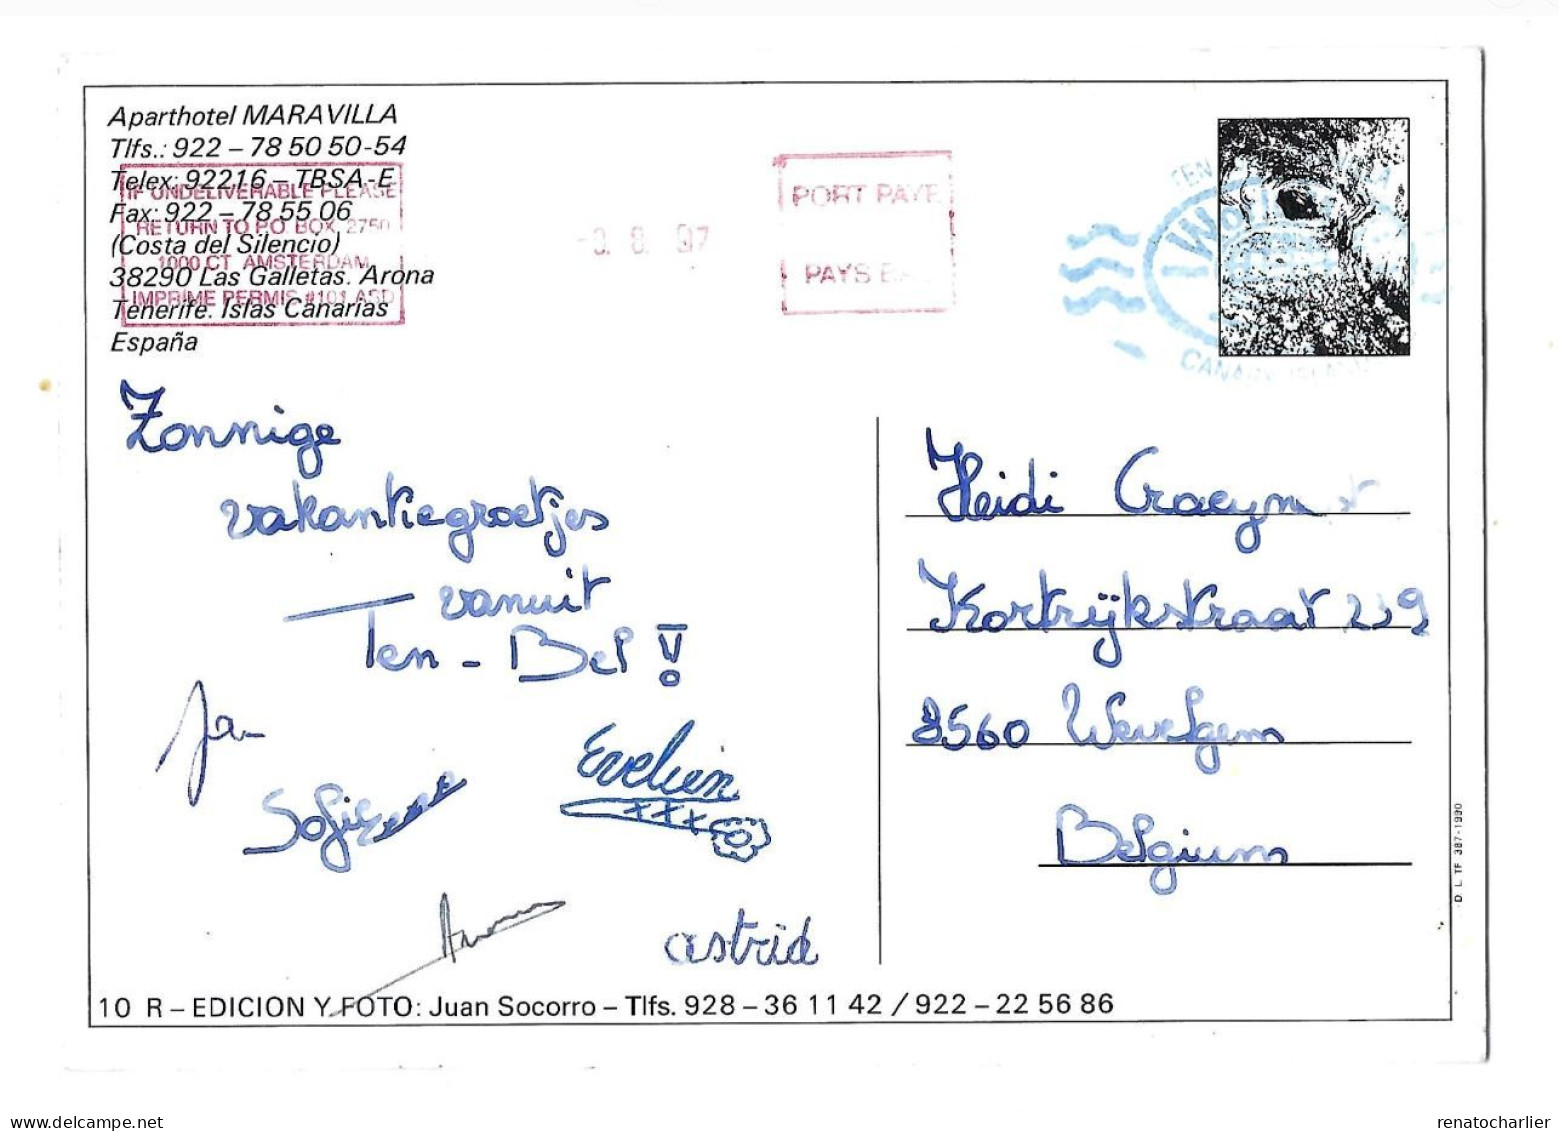 Aparthotel MARAVILLA
Tlfs.: 922 – 78 50 50-54
Telex: 92216 – TBSA-E
Fax: 922 – 78 55 06
(Costa del Silencio)
38290 Las Galletas. Arona
Tenerife. Islas Canarias
España
IF UNDELIVERABLE PLEASE
RETURN TO P.O. BOX 2750
1000 CT AMSTERDAM
IMPRIME PERMIS #101 ASD
-3. 8. 97
PORT PAYE
PAYS BAS
TEN
CANARY ISLANDS
Zonnige
vakantiegroetjes
vanuit
Ten - Bel !
Jan
Sofie
Evelien
xxx
astrid
Heidi
Kortrijkstraat 239
8560 Wevelgem
Belgium
D. L. TF 387-1990
10 R – EDICION Y FOTO: Juan Socorro – Tlfs. 928 – 36 11 42 / 922 – 22 56 86
renatocharlier